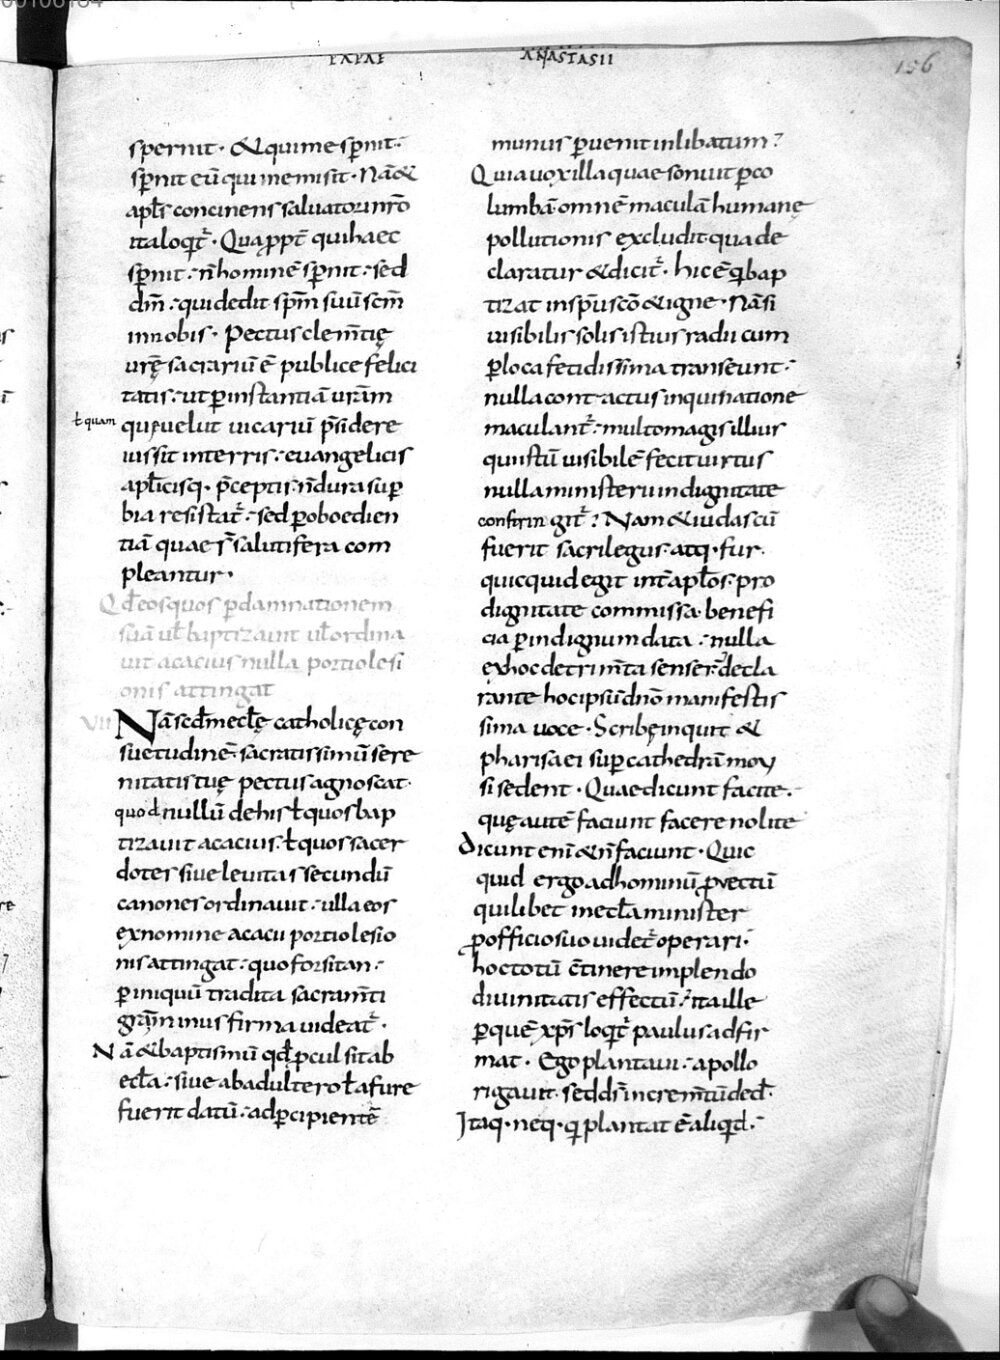 00106184
PAPAE ANASTASII
156
spernit· &quimesp̄nit·
sp̄nit eū quimemisit· Nā&
apl̄s concinens saluatori nr̄o
italoqit᷒· Quapp̄t quihaec
sp̄nit· n̄hominē sp̄nit· sed
dm̄· quidedit spm̄ suū scm̄
innobis· Pectus clem̄tię
urę̄ sacrariū ē publice felici
tatis· ut p̄instantiā urām
ł quam quęuelut uicariū p̄sidere
iussit interris· euangelicis
apl̄icisq· p̄ceptis n̄dura sup̄
bia resistat᷒· sed p̄oboedien
tiā quae s̄ salutifera com
pleantur·
Qd̄eosquos p̄damnationem
suā ul̄ baptizauit ul̄ ordina
uit acacius nulla portio lesi
onis attingat
VII Nā scd̄m ecl̄ę catholicę con
suetudinē sacratissimū sere
nitatis tuę pectus agnoscat·
quod nullū dehis ł quos bap
tizauit acacius· ł quos sacer
dotes siue leuitas secundū
canones ordinauit· ulla eos
exnomine acacii portio lesio
nis attingat· quo forsitan·
p̄iniquū tradita sacram̄ti
gr̄a minus firma uideat᷒·
Nā &baptismū qd̄ pcul sit ab
ecl̄a· siue ab adultero ł a fure
fuerit datū· adp̄cipientē
munus p̄uenit inlibatum?
Quia uox illa quae sonuit p̄co
lumbā omnē maculā humanę
pollutionis excludit qua de
claratur &dicit᷒· hic ē qi bap
tizat inspū scō &igne· Nā si
uisibilis solis istius radii cum
p̄loca fetidissima transeunt·
nulla contractus inquinatione
maculant᷒· multomagis illius
qui istū uisibilē fecit uirtus
nulla ministerii indignitate
constringit᷒? Nam &iudas cū
fuerit sacrilegus atq· fur·
quicquid egit int̄ apl̄os pro
dignitate commissa· benefi
cia p̄indignum data· nulla
exhoc detrim̄ta senser̄ decla
rante hoc ipsū dn̄o manifestis
sima uoce· Scribę inquit &
pharisaei sup̄ cathedrā moy
si sedent· Quae dicunt facite·
quę autē faciunt facere nolite
dicunt enī &n̄ faciunt· Quic
quid ergo ad hominū puectū
quilibet in ecl̄a minister
pofficio suo uidet᷒ operari·
hoc totū c̄tinere implendo
diuinitatis effectū· ita ille
p̄quē xp̄s loqit᷒ paulus adfir
mat· Ego plantaui· apollo
rigauit· sed ds̄ increm̄tū ded̄·
Itaq· neq· qi plantat ē aliqid·